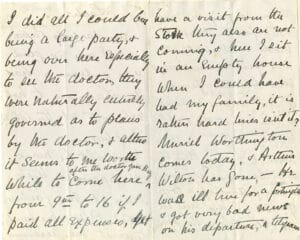 I did all I could but
being a large party, &
being over here specially
to see the doctor, they
were naturally entirely
governed as to plans
by the doctor, & altho
it seems to me worth
after the doctor
while to come here
from 9th to 16 if I
paid all expenses, yet
have a visit from the
they also are not
coming, & here I sit
in an Empty house
when I could have
had my family, it is
rather hard lines isnt it,
Muriel Worthington
comes today, & Arthur
Wilton has gone, – He
was ill here for a fortnight
& got very bad news
on his departure, a telegram